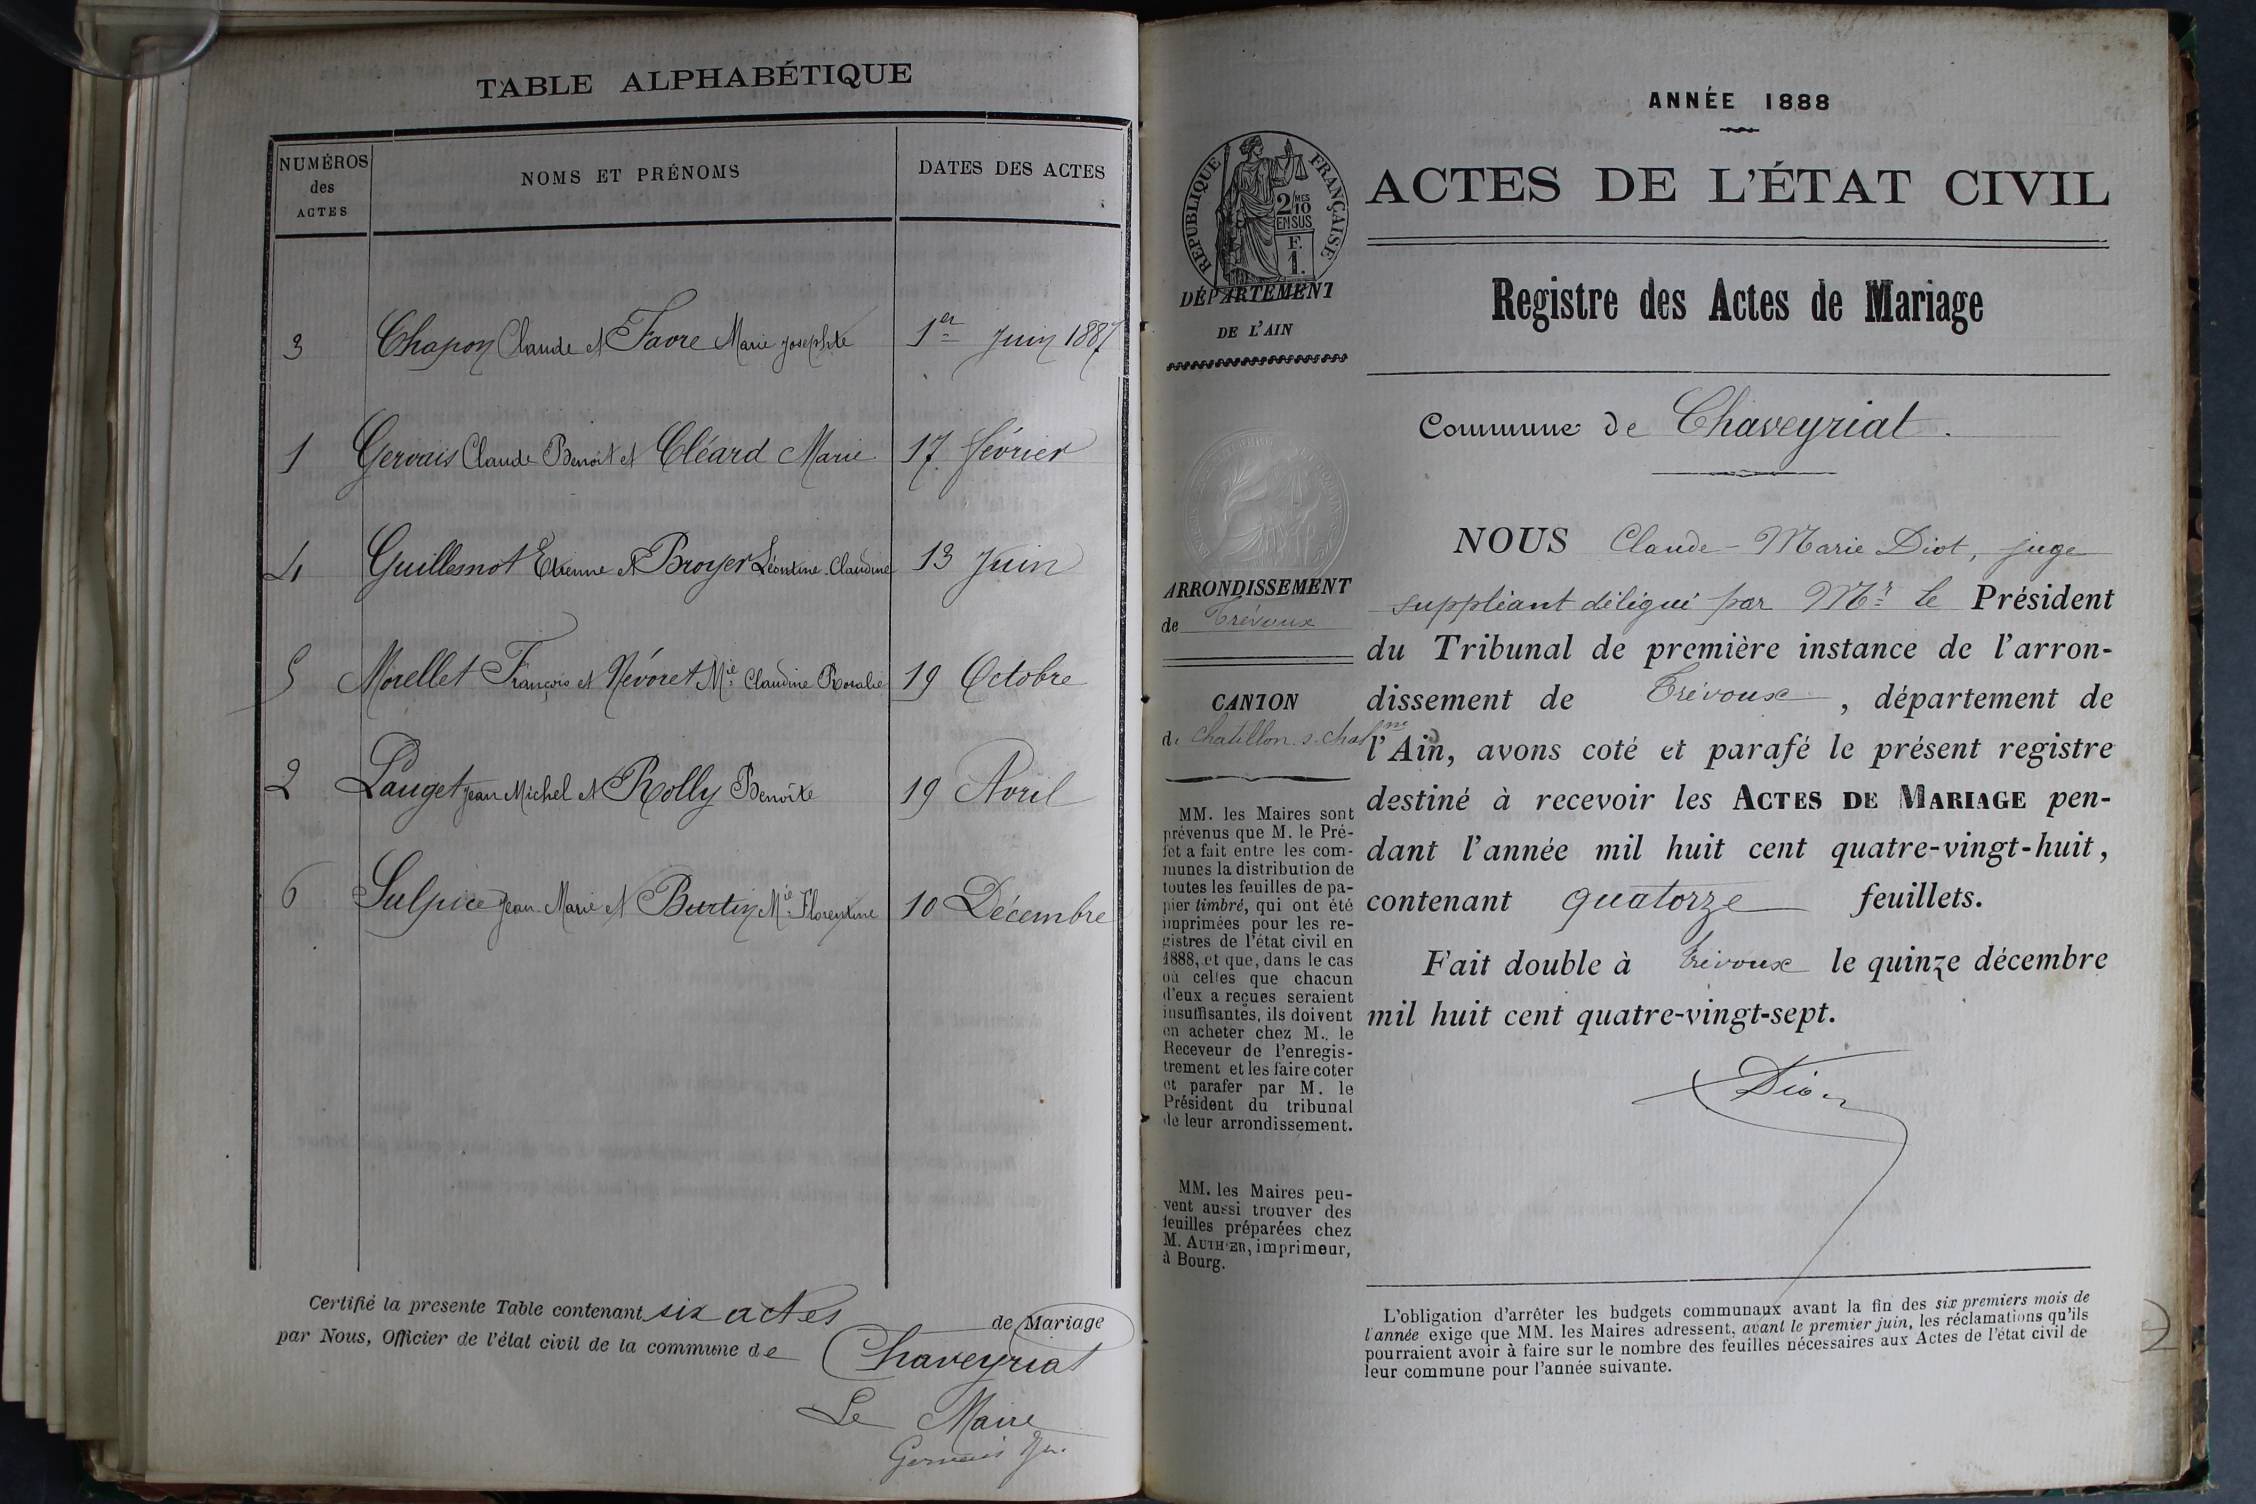 TABLE ALPHABÉTIQUE
NUMÉROS des ACTES
NOMS ET PRÉNOMS
DATES DES ACTES
3 Chapon Claude et Favre Marie Josephte 1er Juin 1887
1 Gervais Claude Benoit et Cléard Marie 17 février
4 Guillemot Etienne et Broyer Léontine Claudine 13 Juin
5 Morellet François et Névoret Mie Claudine Rosalie 19 Octobre
2 Pauget Jean Michel et Rolly Benoîte 19 Avril
6 Sulpice Jean Marie et Burtin Mie Florentine 10 Décembre
Certifié la presente Table contenant six actes de Mariage
par Nous, Officier de l'état civil de la commune de Chaveyriat
Le Maire
Gervais
ANNÉE 1888
RÉPUBLIQUE FRANÇAISE
2/10 MES
EN SUS
F.
1.
DÉPARTEMENT
DE L'AIN
ACTES DE L'ÉTAT CIVIL
Registre des Actes de Mariage
Commune de Chaveyriat.
ARRONDISSEMENT
de Trévoux
CANTON
de Chatillon s. Chalne
MM. les Maires sont
prévenus que M. le Pré-
fet a fait entre les com-
munes la distribution de
toutes les feuilles de pa-
pier timbré, qui ont été
imprimées pour les re-
gistres de l'état civil en
1888, et que, dans le cas
où celles que chacun
d'eux a reçues seraient
insuffisantes, ils doivent
en acheter chez M. le
Receveur de l'enregis-
trement et les faire coter
et parafer par M. le
Président du tribunal
de leur arrondissement.
MM. les Maires peu-
vent aussi trouver des
feuilles préparées chez
M. AUTHIER, imprimeur,
à Bourg.
NOUS Claude-Marie Diot, juge
suppléant délégué par Mr le Président
du Tribunal de première instance de l'arron-
dissement de Trévoux, département de
l'Ain, avons coté et parafé le présent registre
destiné à recevoir les ACTES DE MARIAGE pen-
dant l'année mil huit cent quatre-vingt-huit,
contenant quatorze feuillets.
Fait double à Trévoux le quinze décembre
mil huit cent quatre-vingt-sept.
Diot
L'obligation d'arrêter les budgets communaux avant la fin des six premiers mois de
l'année exige que MM. les Maires adressent, avant le premier juin, les réclamations qu'ils
pourraient avoir à faire sur le nombre des feuilles nécessaires aux Actes de l'état civil de
leur commune pour l'année suivante.